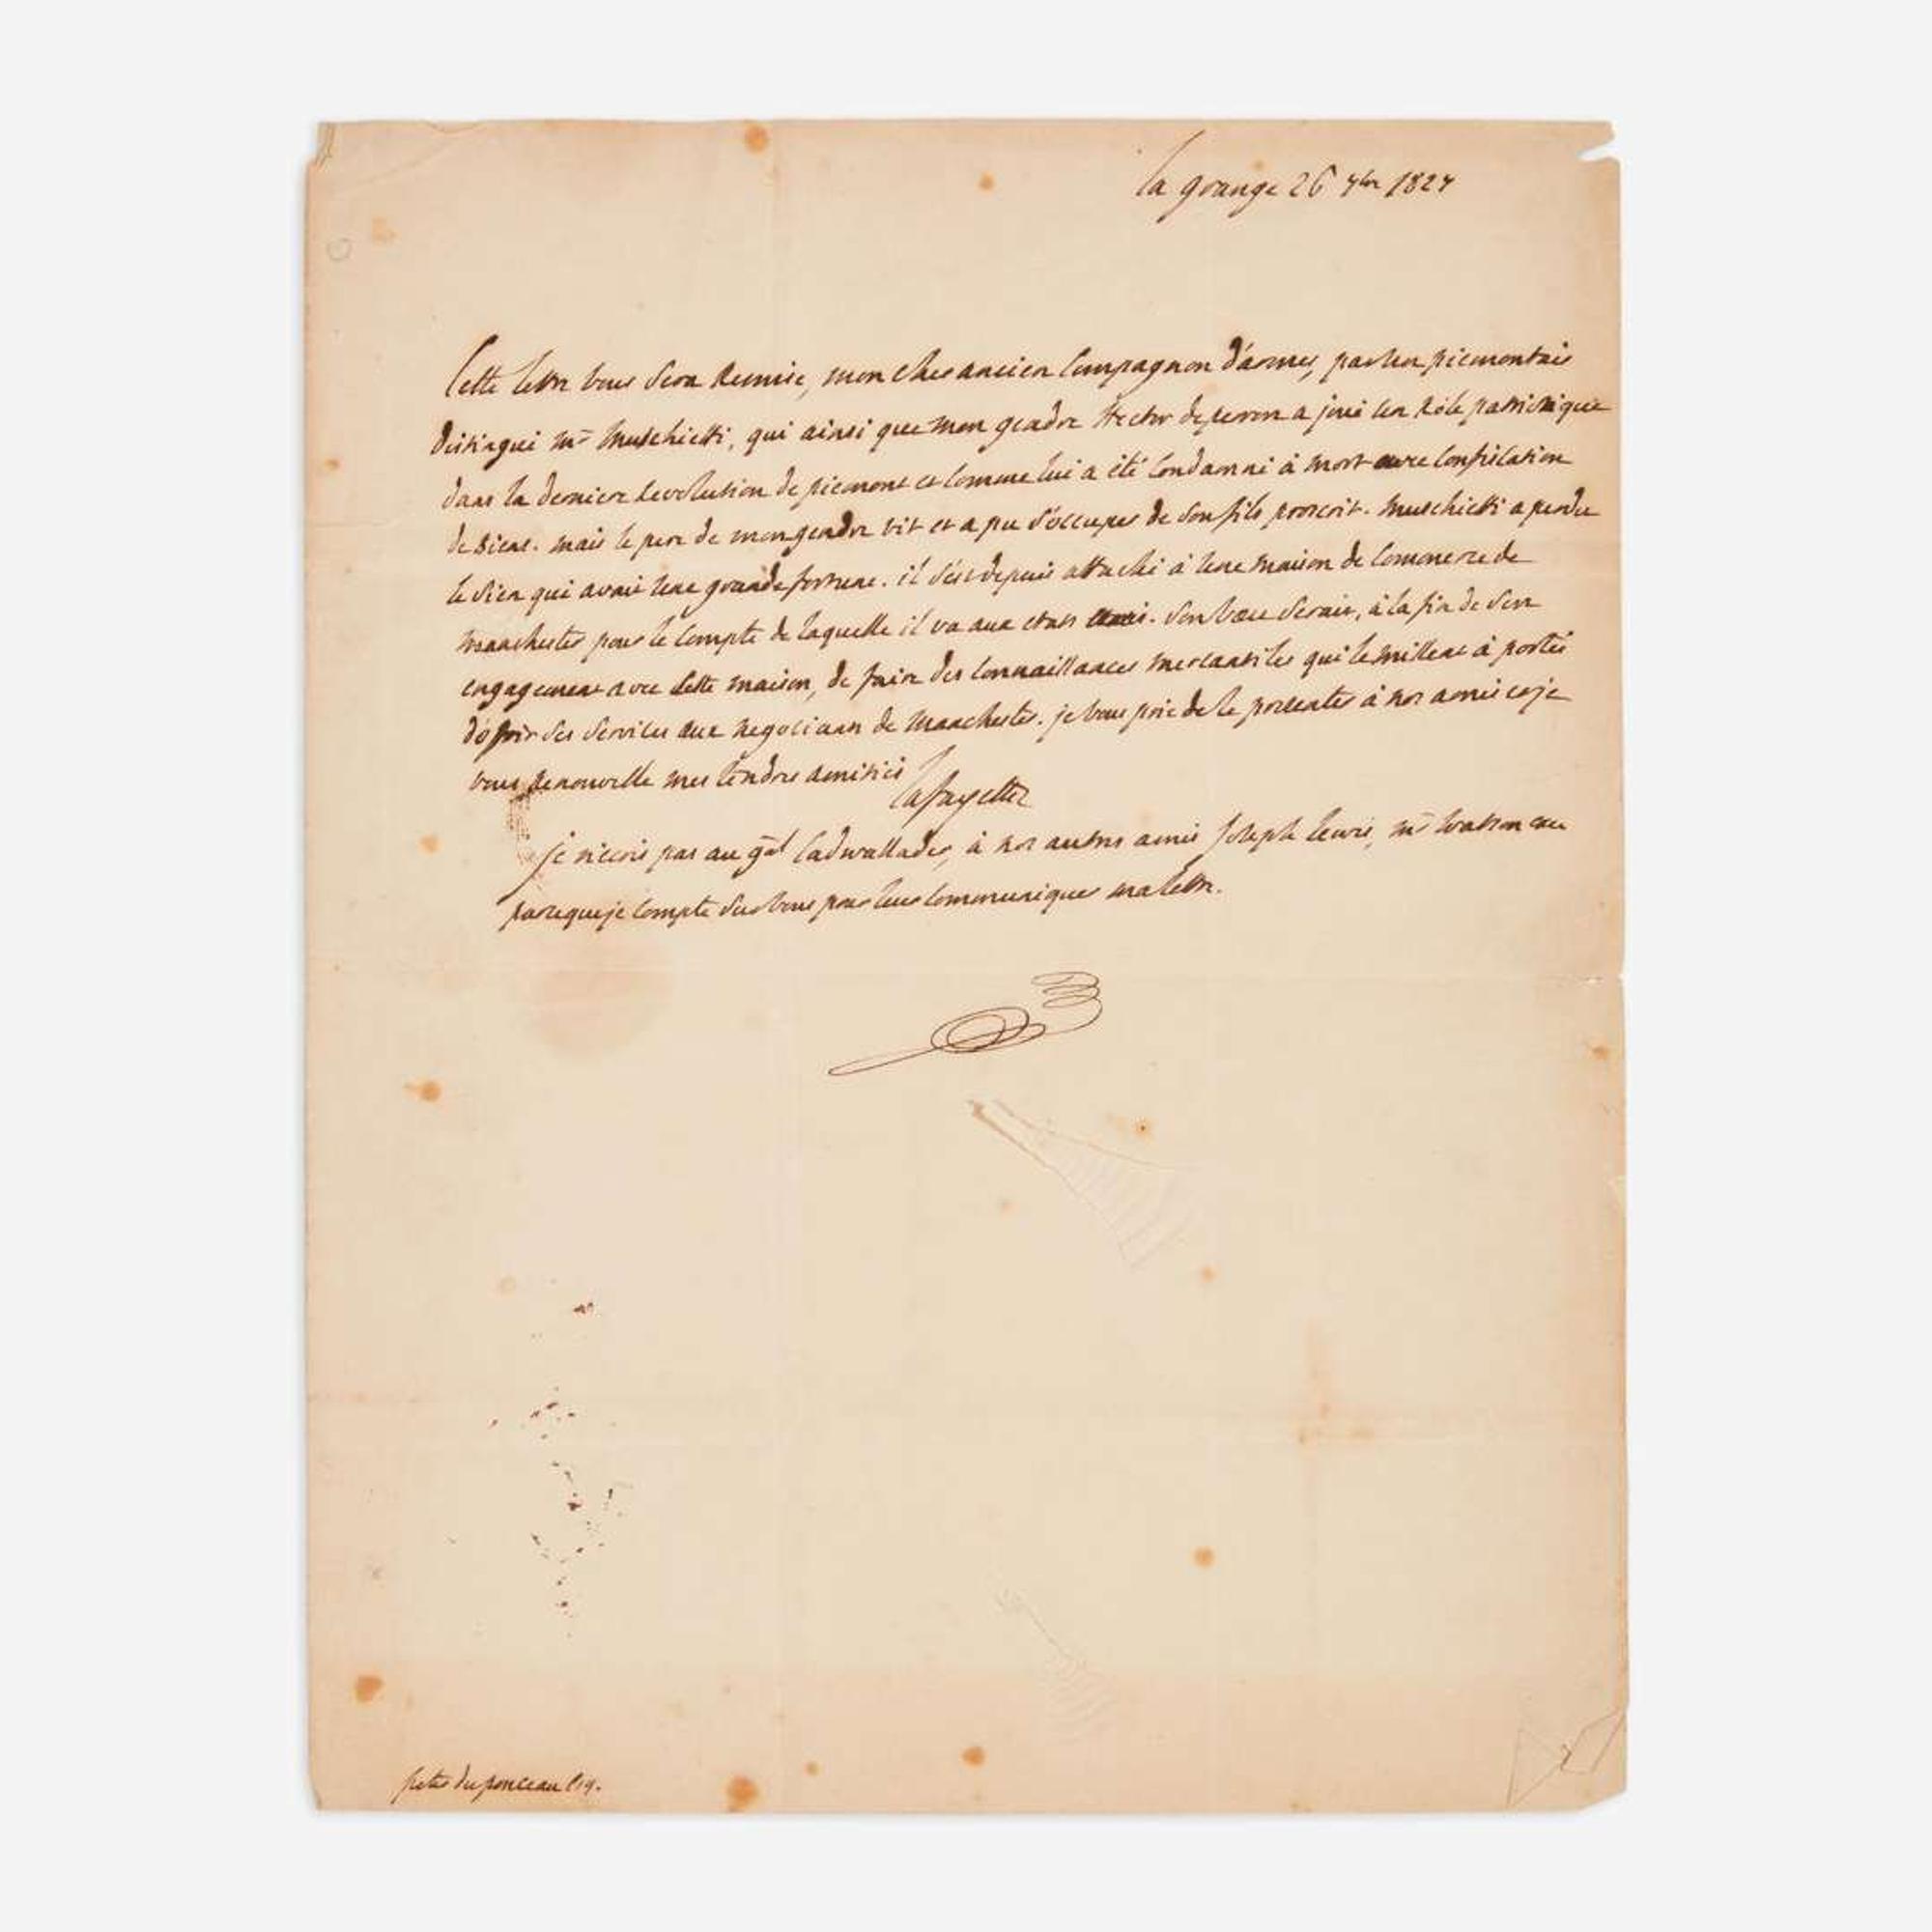 la grange 26 7bre 1827
Cette lettre vous sera Remise, mon cher ancien Compagnon d'armes, par un piemontais
distingué mr Muschietti, qui ainsi que mon gendre Hector de perron a joué un Rôle patriotique
dans la derniere Revolution de piemont et Comme lui a été Condamné à mort avec Confiscation
de Biens. mais le pere de mon gendre vit et a pu s'occuper de son fils proscrit. Muschietti a perdu
le sien qui avait une grande fortune. il s'est depuis attaché à une maison de Commerce de
manchester pour le Compte de laquelle il va aux etats unis. Son voeu serait, à la fin de son
engagement avec Cette maison, de faire des Connaissances mercantiles qui le missent à portée
d'offrir ses services aux negocians de Manchester. je vous prie de le presenter à nos amis et je
vous Renouvelle mes tendres amitiés
Lafayette
je n'ecris pas au gal Cadwallader, à nos autres amis Joseph Lewis, mr Watson
parceque je Compte sur vous pour leur Communiquer ma lettre.
peter du ponceau esq.